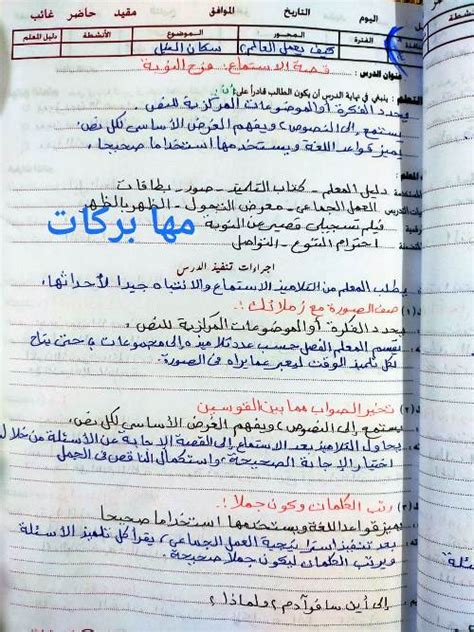 اليوم التاريخ الموافق مقيد حاضر غائب
الفترة المحور الموضوع الأنشطة دليل المعلم
كيف يعمل العالم؟ سكان المنزل
عنوان الدرس: قصة الاستماع: فرح النوبة
ينبغي في نهاية الدرس أن يكون الطالب قادراً على أن:
يحدد الفكرة أو الموضوعات المركزية للنص.
يستمع إلى النصوص، ويفهم الغرض الأساسي لكل نص.
يميز قواعد اللغة ويستخدمها استخداما صحيحا.
دليل المعلم - كتاب التلميذ - صور - بطاقات
العمل الجماعي - معرض التجول - الظهر بالظهر
فيلم تسجيلي قصير عن النوبة
احترام التنوع - التواصل
مها بركات
إجراءات تنفيذ الدرس
يطلب المعلم من التلاميذ الاستماع والانتباه جيدا لأحداثها.
(١) صف الصورة مع زملائك:
يحدد الفكرة أو الموضوعات المركزية للنص.
يقسم المعلم الفصل حسب عدد تلاميذه إلى مجموعات، حتى يتاح
لكل تلميذ الوقت ليعبر عما يراه في الصورة.
(٢) تخير الصواب مما بين القوسين
يستمع إلى النصوص، ويفهم الغرض الأساسي لكل نص.
يحاول التلاميذ بعد الاستماع إلى القصة الإجابة عن الأسئلة من خلال
اختيار الإجابة الصحيحة، واستكمال الناقص في الجمل
(٣) رتب الكلمات وكون جملا:
يميز قواعد اللغة ويستخدمها استخداما صحيحا
بعد تنفيذ استراتيجية العمل الجماعي، يقرأ كل تلميذ الأسئلة
ويرتب الكلمات ليكون جملا صحيحة.
إلى أين سافر آدم؟ ولماذا؟